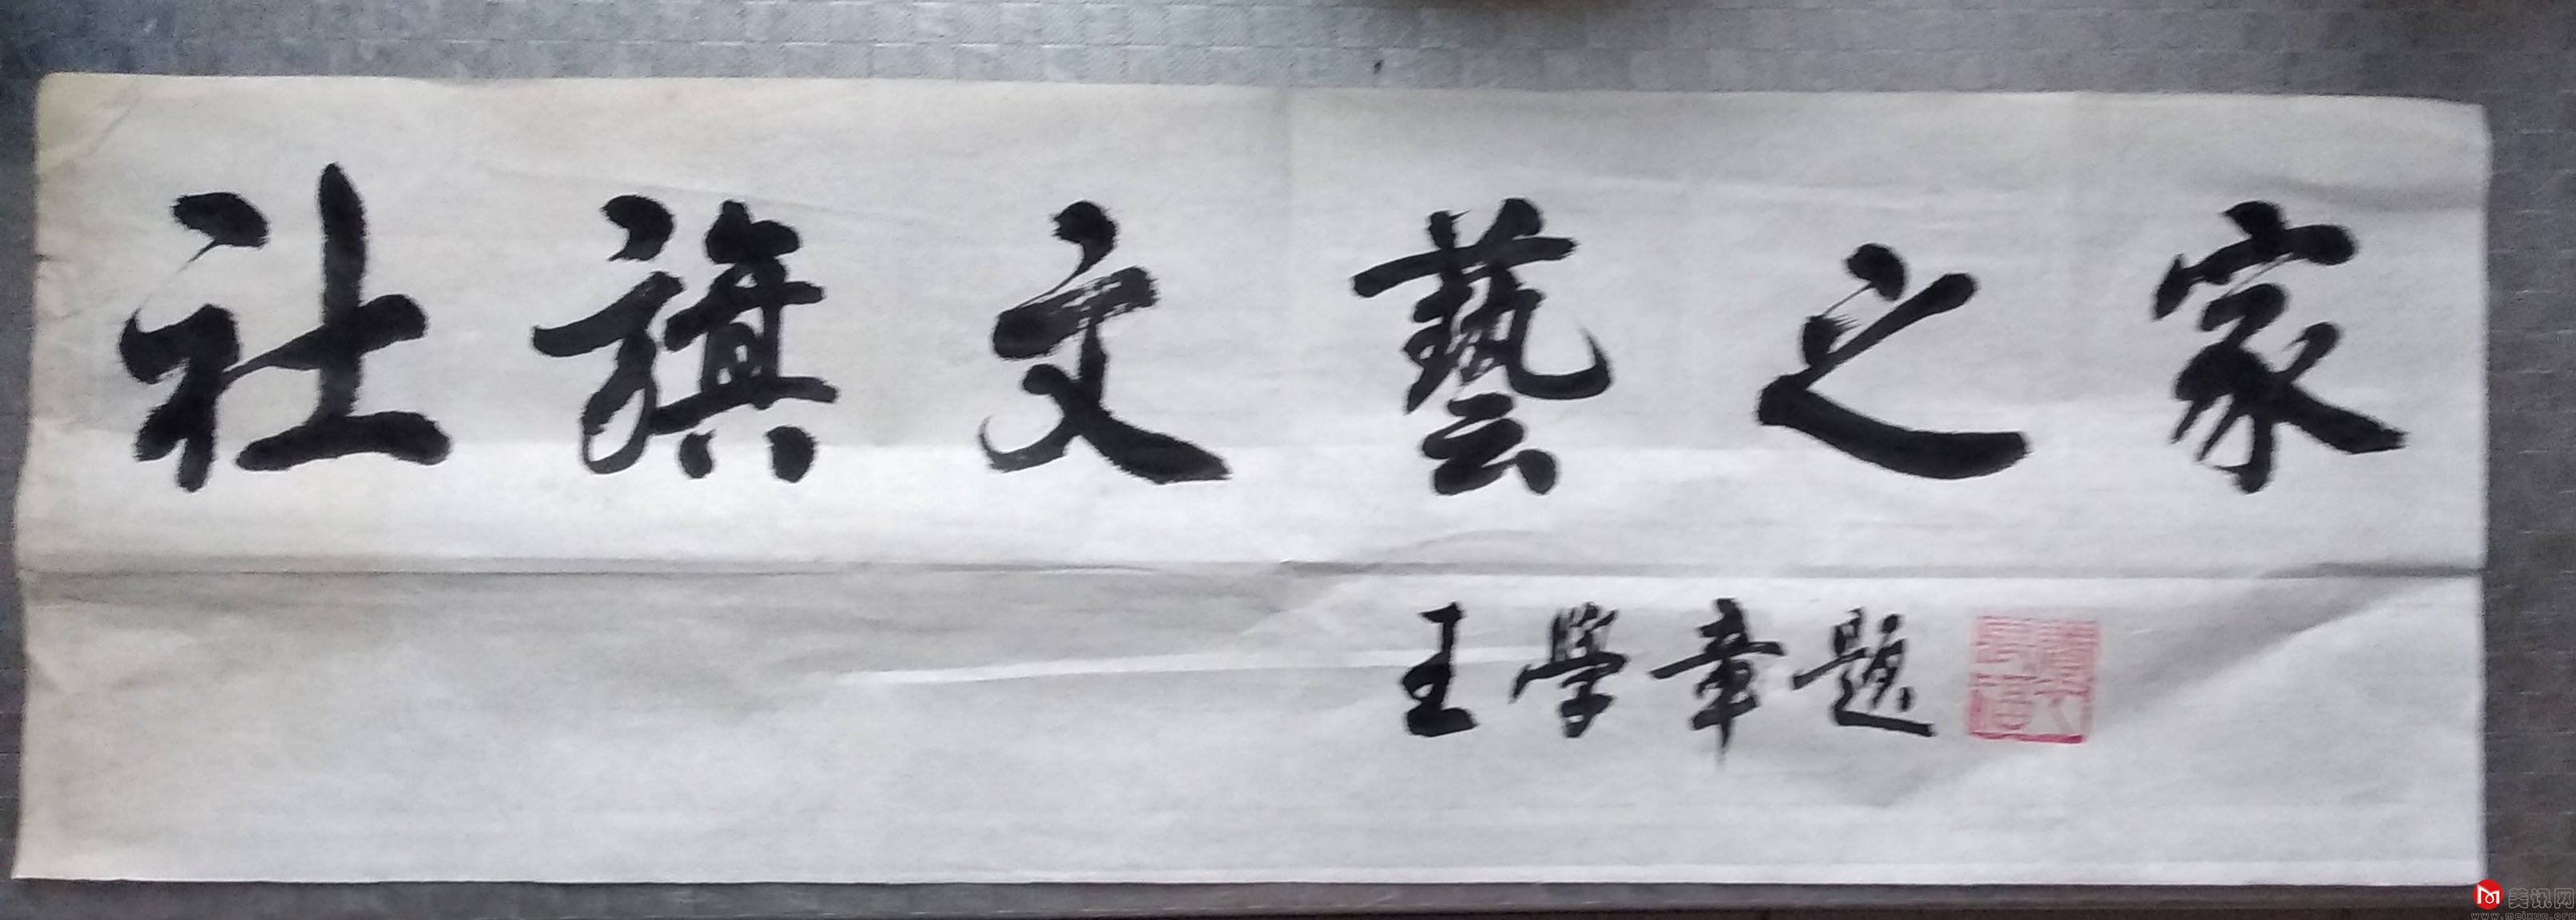 社旗文藝之家
王學章題
美讯网